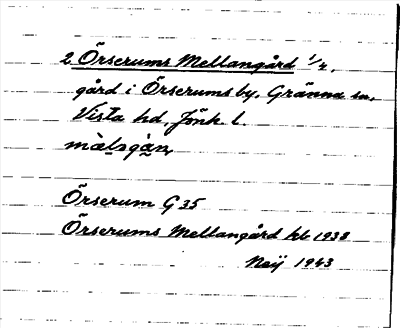 2 Örserums Mellangård 1/2,
gård i Örserums by, Gränna sn,
Vista hd, Jönk. l.
mèlagàn,
Örserum G 35
Örserums Mellangård hb 1938
Neij 1943